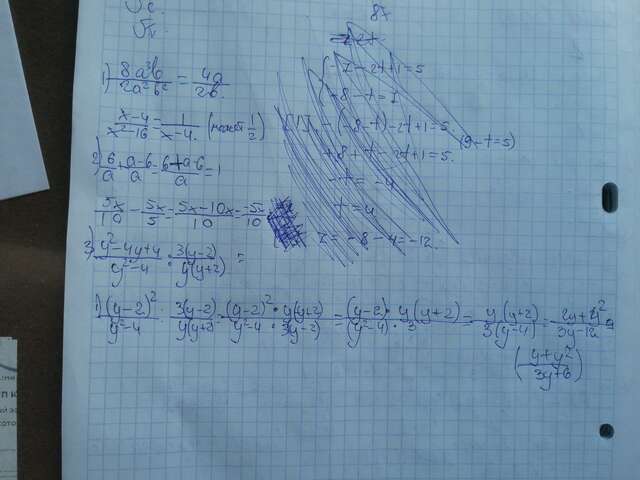 8x
1) 8a³b / 2a²b² = 4a / 2b.
x-4 / x²-16 = 1 / x-4. (может 1/2)
2) 6/a + a-6/a = 6+a-6 / a = 1
5x/10 - 5x/5 = 5x-10x / 10 = -5x / 10
3) y²-4y+4 / y²-4 : 3(y-2) / y(y+2) =
1) (y-2)² / y²-4 : 3(y-2) / y(y+2) = (y-2)² · y(y+2) / y²-4 · 3(y-2) = (y-2) · y(y+2) / (y²-4) · 3 = y(y+2) / 3(y-4) = 2y+y² / 3y-12 =
(y+y² / 3y+6)
-z-2t+1=5
-8-t=z
-(-8-t)-2t+1=5
(9-t=5)
+8+t-2t+1=5.
-t=-4
t=4
z=-8-4=-12.